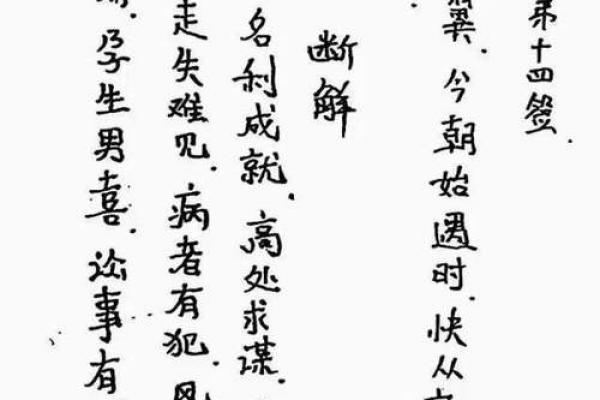 第十四签.
翼.今朝始遇时.快从
断解
名利成就.高处求谋.
走失难见.病者有犯.
.孕生男喜.论事有